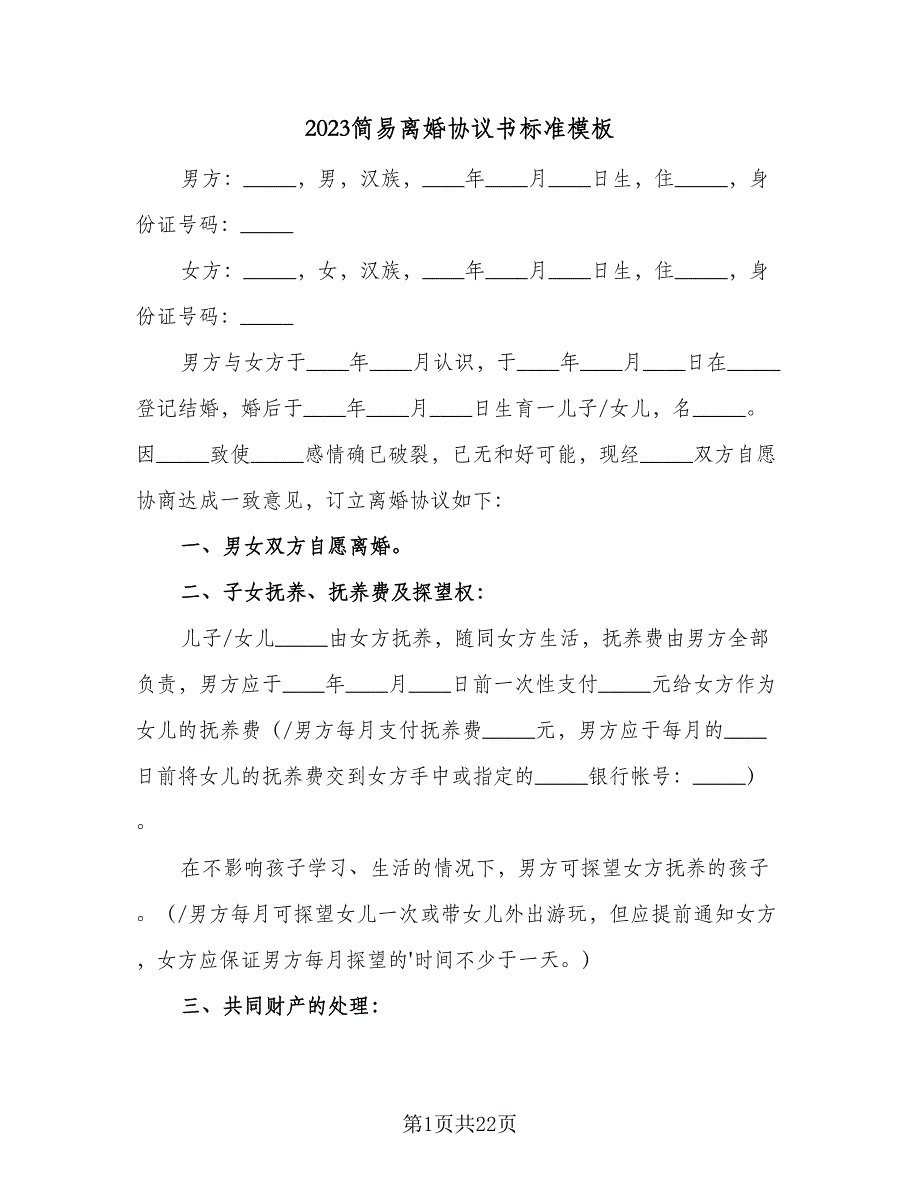 2023简易离婚协议书标准模板
男方：_____，男，汉族，____年____月____日生，住_____，身
份证号码：_____
女方：_____，女，汉族，____年____月____日生，住_____，身
份证号码：_____
男方与女方于____年____月认识，于____年____月____日在_____
登记结婚，婚后于____年____月____日生育一儿子/女儿，名_____。
因_____致使_____感情确已破裂，已无和好可能，现经_____双方自愿
协商达成一致意见，订立离婚协议如下：
一、男女双方自愿离婚。
二、子女抚养、抚养费及探望权：
儿子/女儿_____由女方抚养，随同女方生活，抚养费由男方全部
负责，男方应于____年____月____日前一次性支付_____元给女方作为
女儿的抚养费（/男方每月支付抚养费_____元，男方应于每月的____
日前将女儿的抚养费交到女方手中或指定的_____银行帐号：_____）
。
在不影响孩子学习、生活的情况下，男方可探望女方抚养的孩子
。（/男方每月可探望女儿一次或带女儿外出游玩，但应提前通知女方
，女方应保证男方每月探望的'时间不少于一天。）
三、共同财产的处理：
第1页共22页